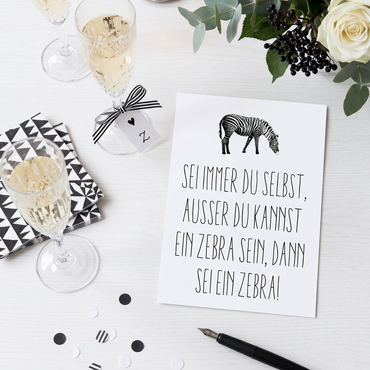 Z
SEI IMMER DU SELBST,
AUSSER DU KANNST
EIN ZEBRA SEIN, DANN
SEI EIN ZEBRA!